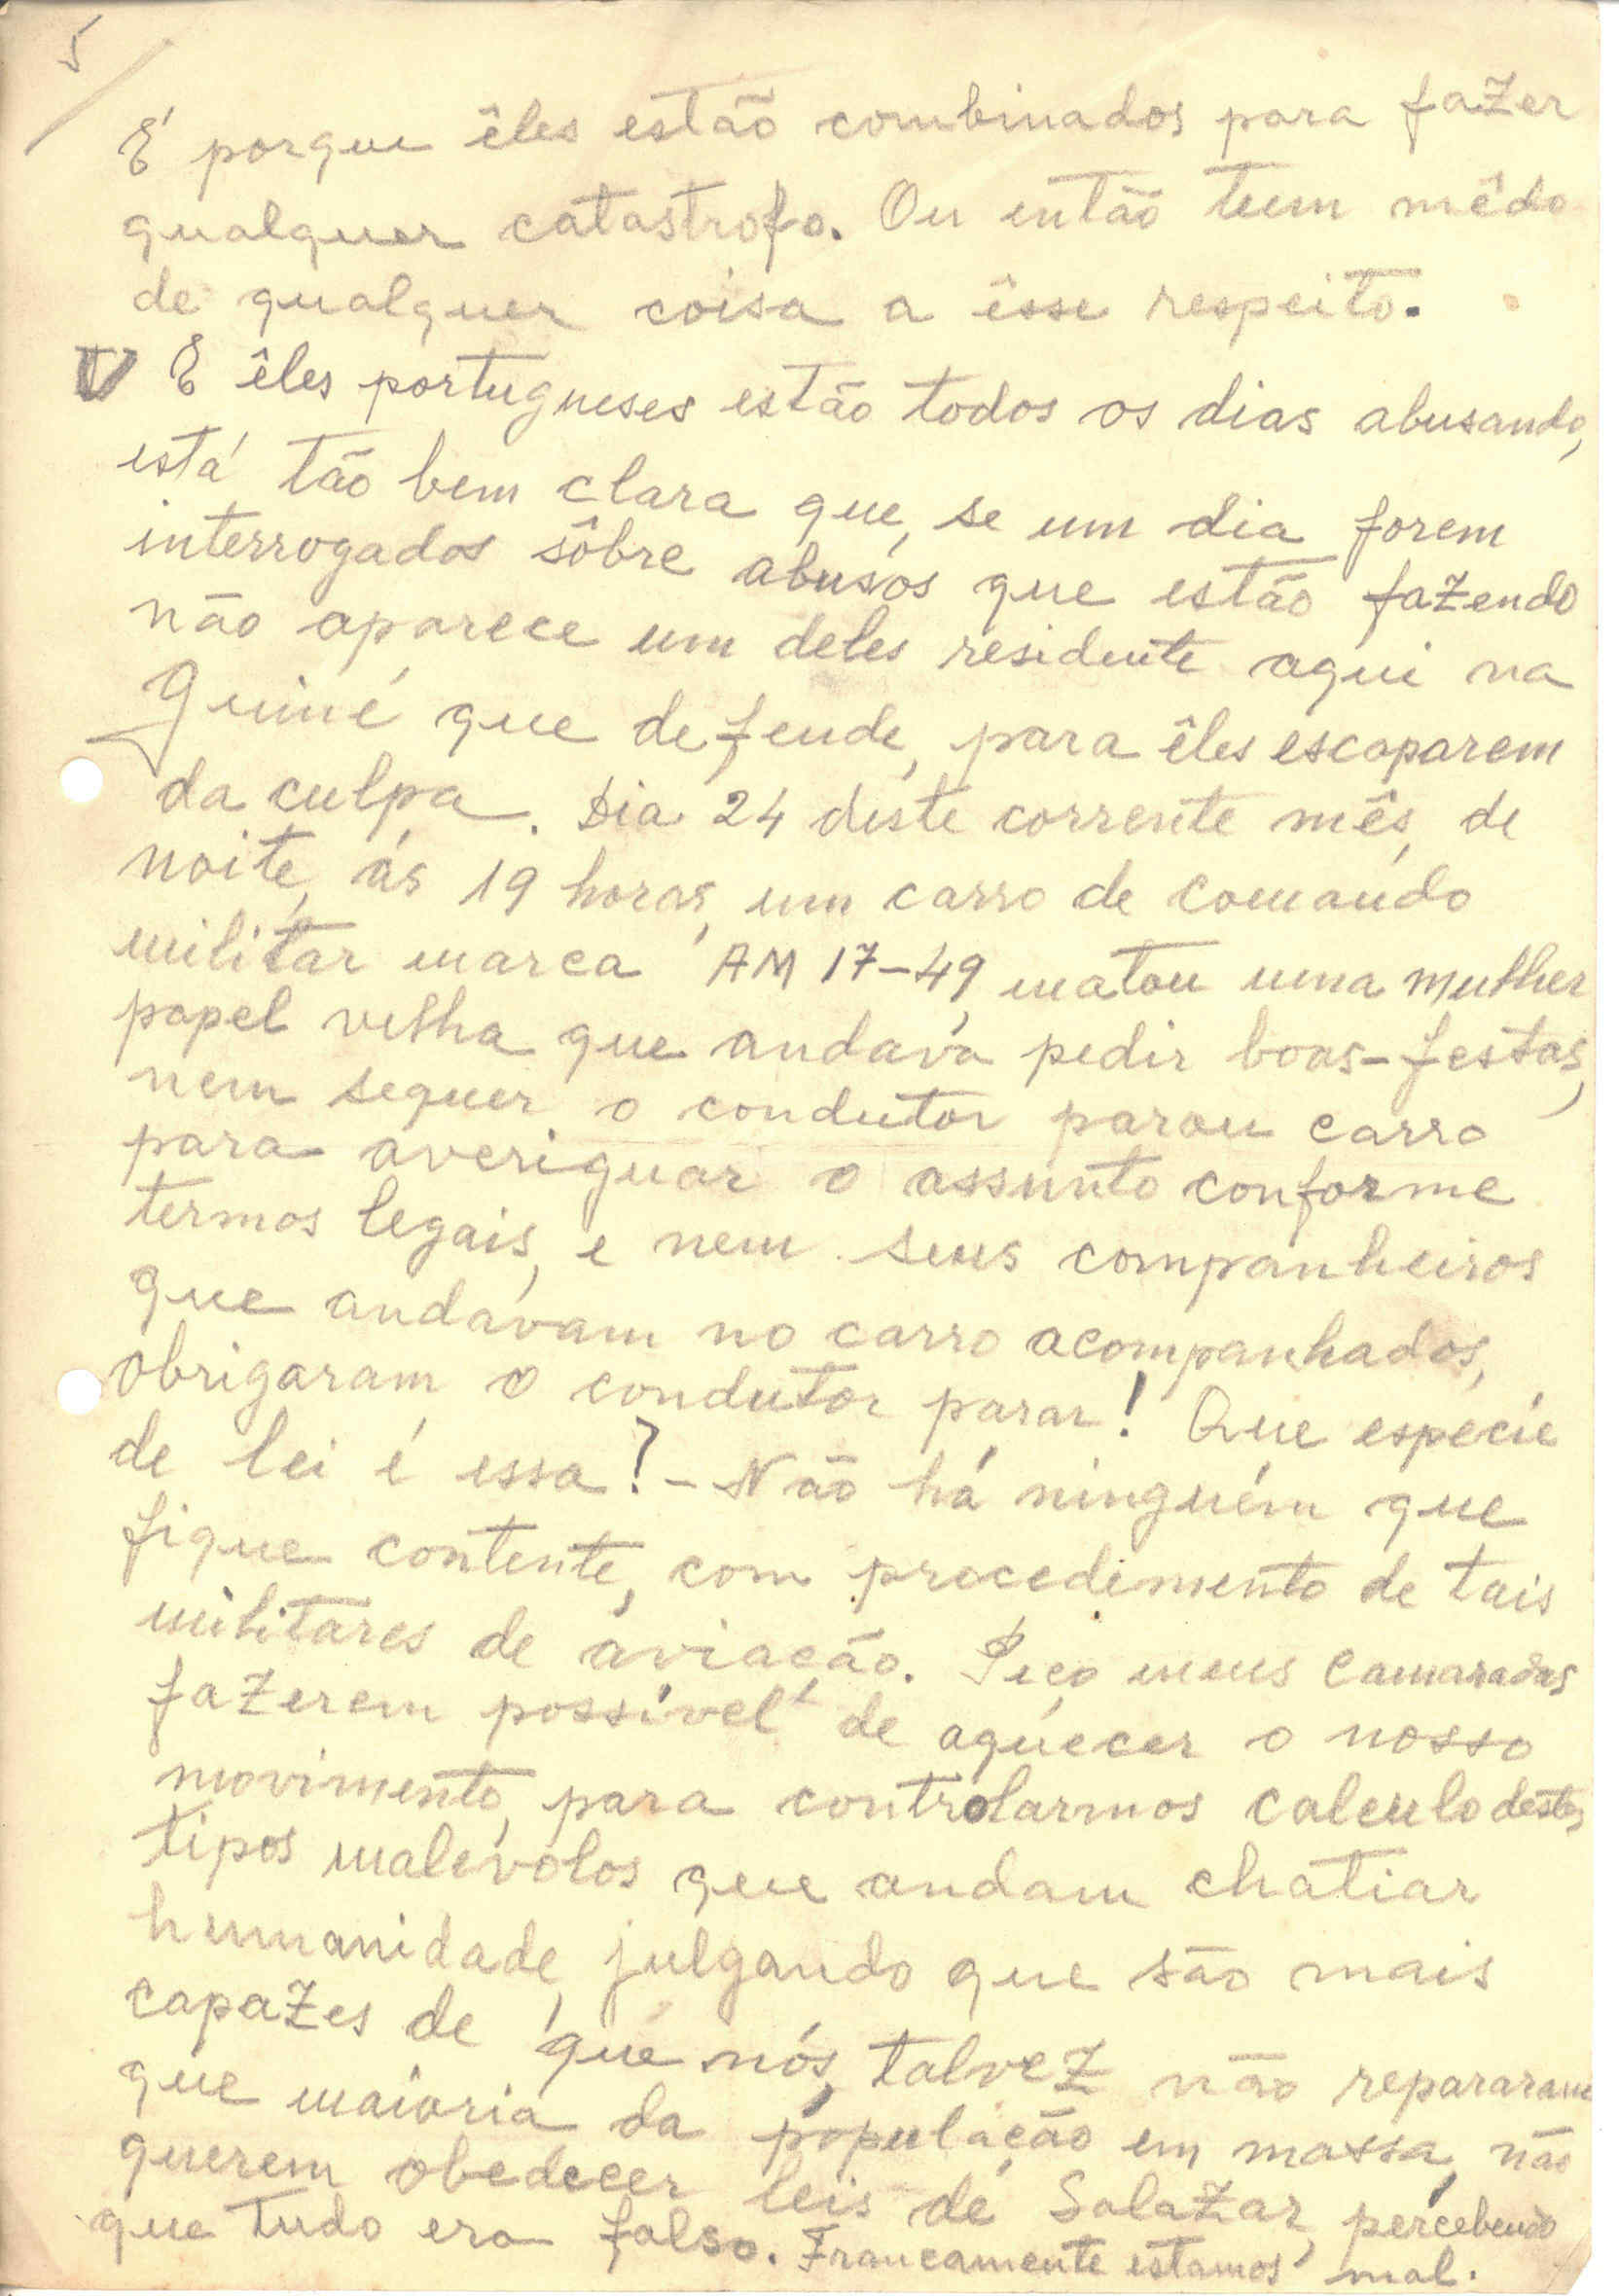 5
É porque êles estão combinados para fazer
qualquer catastrofo. Ou então teem mêdo
de qualquer coisa a êsse respeito.
V E êles portugueses estão todos os dias abusando,
está tão bem clara que, se um dia forem
interrogados sôbre abusos que estão fazendo
não aparece um deles residente aqui na
Guiné que defende, para êles escaparem
da culpa. Dia 24 deste corrente mês, de
noite, ás 19 horas, um carro de comando
militar marca AM 17-49, matou uma mulher
papel velha que andava pedir boas-festas,
nem sequer o condutor parou carro
para averiguar o assunto conforme
termos legais, e nem seus companheiros
que andavam no carro acompanhados,
obrigaram o condutor parar! Que especíe
de lei é essa? - Não há ninguém que
fique contente, com procedimento de tais
militares de aviação. Peço meus camaradas
fazerem possível de aquecer o nosso
movimento, para controlarmos calculo destes
tipos malevolos que andam chatiar
humanidade, julgando que são mais
capazes de que nós, talvez não repararam
que maioria da população em massa, não
querem obedecer leis de Salazar, percebendo
que tudo era falso. Francamente estamos mal.